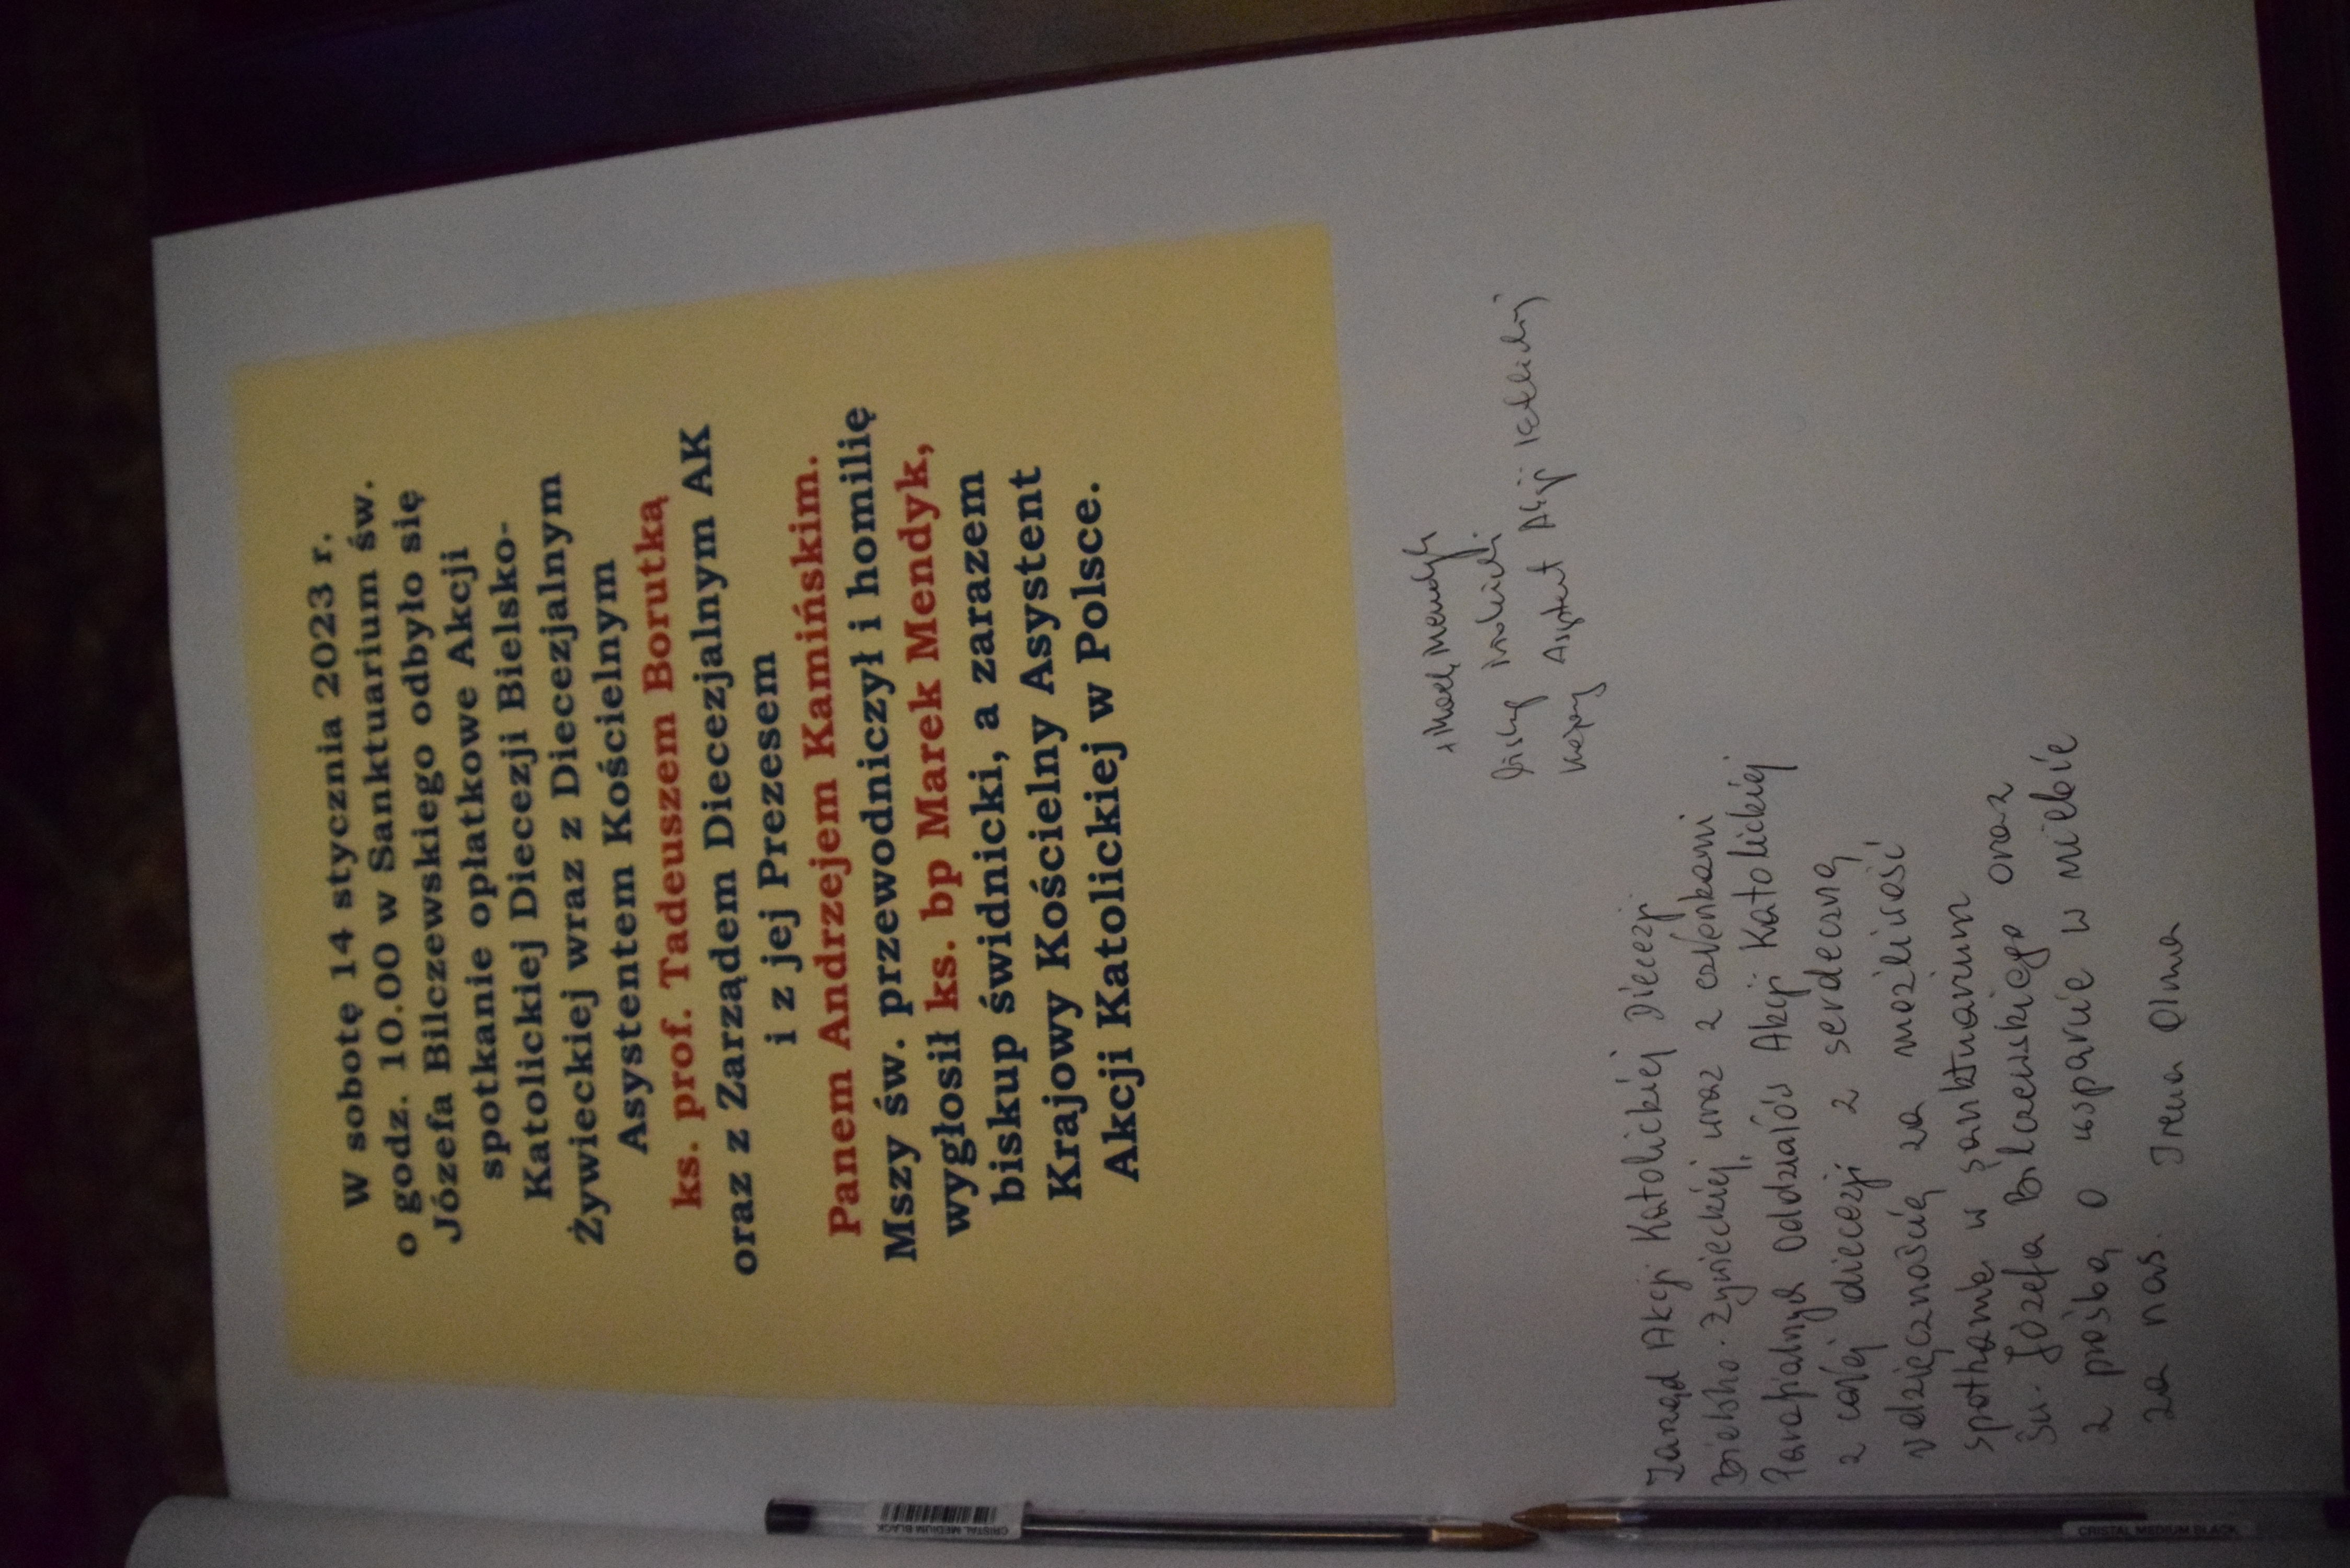 W sobotę 14 stycznia 2023 r.
o godz. 10.00 w Sanktuarium św.
Józefa Bilczewskiego odbyło się
spotkanie opłatkowe Akcji
Katolickiej Diecezji Bielsko-
Żywieckiej wraz z Diecezjalnym
Asystentem Kościelnym
ks. prof. Tadeuszem Borutką
oraz z Zarządem Diecezjalnym AK
i z jej Prezesem
Panem Andrzejem Kamińskim.
Mszy św. przewodniczył i homilię
wygłosił ks. bp Marek Mendyk,
biskup świdnicki, a zarazem
Krajowy Kościelny Asystent
Akcji Katolickiej w Polsce.
+ Marek Mendyk
Asystent Akcji
Zarząd Akcji Katolickiej Diecezji
Bielsko-Żywieckiej, wraz z członkami
Parafialnych Oddziałów Akcji Katolickiej
z całej diecezji z serdeczną
wdzięcznością za możliwość
spotkania w sanktuarium
św. Józefa Bilczewskiego oraz
z prośbą o wsparcie w niebie
za nas. Irena Olma
CRISTAL MEDIUM BLACK
CRISTAL MEDIUM BLACK